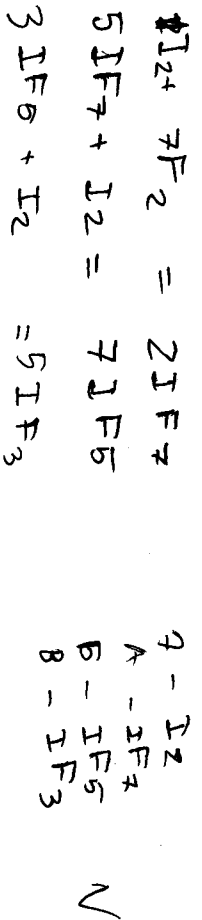 I₂ + 7F₂ = 2IF7
5IF7 + I2 = 7IF5
3IF5 + I2 = 5IF₃
- I2
A - IF7
Б - IF5
В - IF3